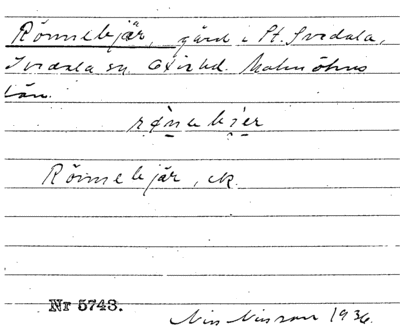 Rönnebjär, gård i St. Svedala,
Svedala sn. Oxie hd. Malmöhus
län.
rønebjer
Rönnebjär, ek.
Nr 5743.
Nils Nilsson 1936.